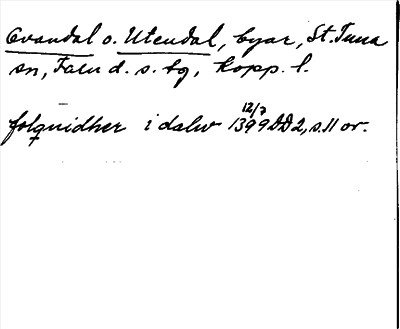 Ovandal o. Utendal, byar, St. Tuna
sn, Falu d. s. bg, Kopp. l.
folquidher i dalw 12/7 1399 DD2, s. 11 or.